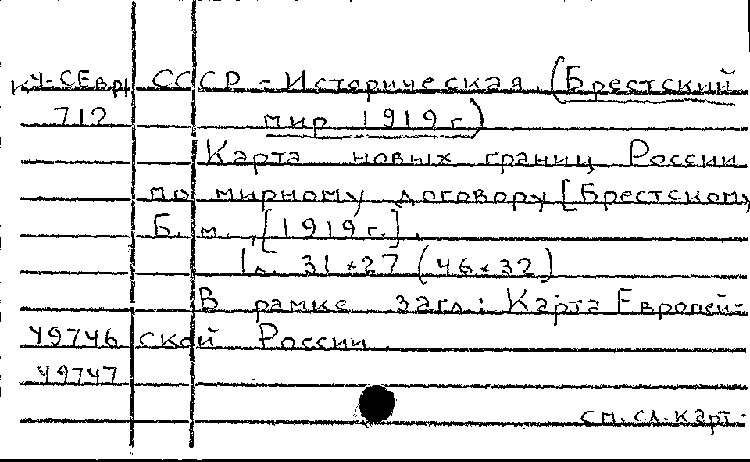 К4-СЕвр СССР - Историческая. (Брестский
712 мир 1919 г)
Карта новых границ России
по мирному договору [Брестскому
Б. м., [1919 г.].
1 л. 31×27 (46×32)
В рамке загл.: Карта Европей-
49746 ской России.
49747
см. сл. карт.